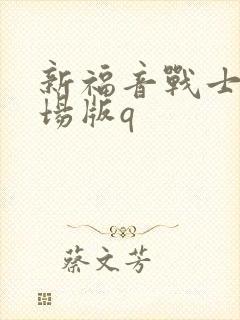 新福音戰士
場版q
蔡文芳